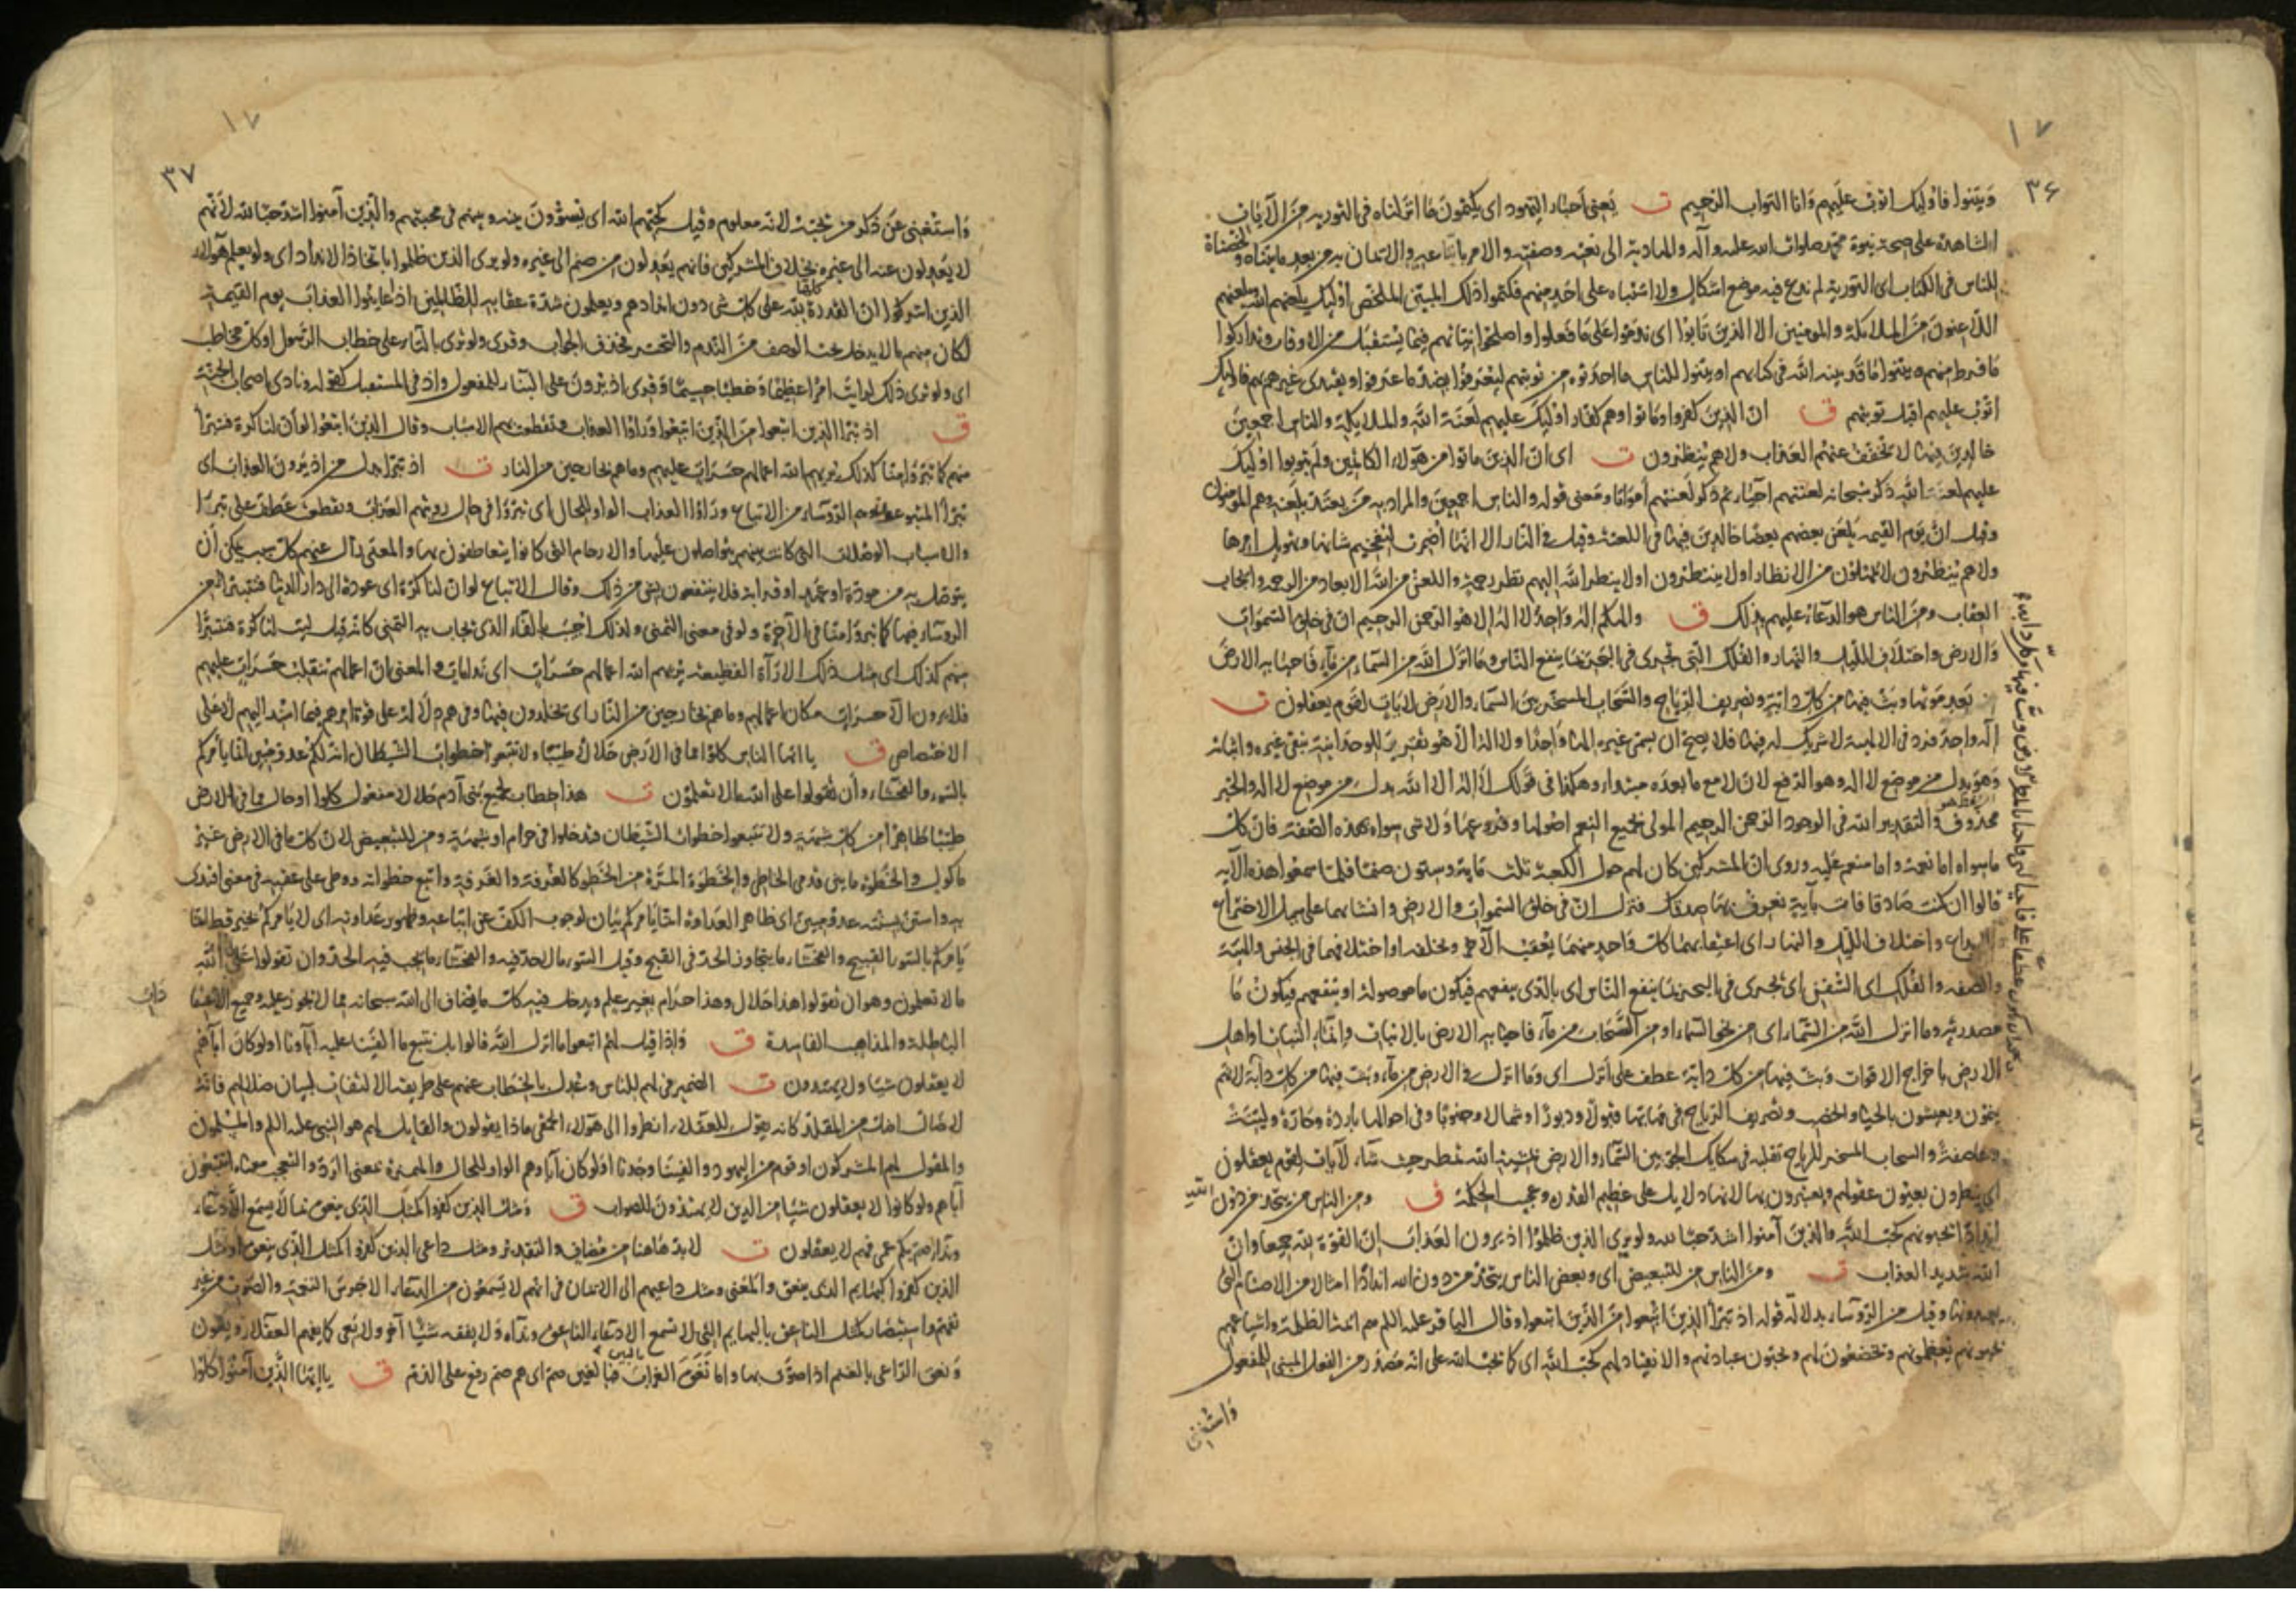 ١٧
٣٦
وبيّنوا فاولٓئك اتوب عليهم وانا التواب الرحيم ت يعنى احبار اليهود اى يكتمون ما انزلناه فى التورية من الآيات
الشاهدة على صحة نبوة محمد صلوات الله عليه وآله والهادية الى نعته وصفته والامر باتباعه والايمان به من بعد ما بيناه ولخصناه
للناس فى الكتاب اى التورية لم ندع فيه موضع اشكال ولا اشتباه على احد منهم فكتموا ذلك المبين الملخص اولئك يلعنهم الله ويلعنهم
اللاعنون من الملائكة والمومنين الا الذين تابوا اى ندموا على ما فعلوا واصلحوا نياتهم فيما يستقبل من الاوقات وتداركوا
ما فرط منهم وبينوا ما قد بينه الله فى كتابهم او بينوا للناس ما احدثوه من توبتهم ليعرفوا بضد ما عرفوا ويقتدى غيرهم بهم فاولئك
اتوب عليهم اقبل توبتهم ق ان الذين كفروا وماتوا وهم كفار اولئك عليهم لعنة الله والملائكة والناس اجمعين
خالدين فيها لا يخفف عنهم العذاب ولا هم ينظرون ت اى ان الذين ماتوا من هؤلاء الكاتمين ولم يتوبوا اولئك
عليهم لعنة الله ذكر سبحانه لعنتهم احياء ثم ذكر لعنتهم امواتا ومعنى قوله والناس اجمعين والمراد به من يعتد بلعنه وهم المؤمنون
وقيل ان يوم القيمة يلعن بعضهم بعضا خالدين فيها فى اللعنة وقيل فى النار الا انها اضمرت لتفخيم شانها وتهويل امرها
ولا هم ينظرون لا يمهلون من الانظار او لا ينتظرون او لا ينظر الله اليهم نظر رحمة واللعن من الله الابعاد من الرحمة وايجاب
العقاب ومن الناس هو الدعاء عليهم بذلك ق والهكم اله واحد لا اله الا هو الرحمن الرحيم ان فى خلق السموات
والارض واختلاف الليل والنهار والفلك التى تجرى فى البحر بما ينفع الناس وما انزل الله من السماء من ماء فاحيا به الارض
بعد موتها وبث فيها من كل دابة وتصريف الرياح والسحاب المسخر بين السماء والارض لآيات لقوم يعقلون ت
اله واحد فرد فى الالهية لا شريك له فيها فلا يصح ان يسمى غيره الها واحدا ولا اله الا هو تقرير للوحدانية بنفى غيره واثباته
وهو بدل من موضع لا اله وهو الرفع لان لا مع ما بعده مبتدا وهكذا فى قولك لا اله الا الله بدل من موضع لا اله والخبر
محذوف والتقدير الله فى الوجود الرحمن الرحيم المولى لجميع النعم اصولها وفروعها ولا شى سواه بهذه الصفة فان كل
ما سواه اما نعمة واما منعم عليه وروى ان المشركين كان لهم حول الكعبة ثلث ماية وستون صنما فلما سمعوا هذه الآية
قالوا ان كنت صادقا فات بآية نعرف بها صدقك فنزل ان فى خلق السموات والارض وانشائهما على سبيل الاختراع
والابداع واختلاف الليل والنهار اى اعتقابهما كل واحد منهما يعقب الآخر ويخلفه او اختلافهما فى الجنس والهيئة
والصفة والفلك اى السفن اى تجرى فى البحر بما ينفع الناس اى بالذى ينفعهم فيكون ما موصولة او بنفعهم فيكون ما
مصدرية وما انزل الله من السماء اى من نحو السماء او من السحاب من ماء فاحيا به الارض بالانبات وانماء النبات او اهل
الارض باخراج الاقوات وبث فيها من كل دابة عطف على انزل اى وما انزل فى الارض من ماء وبث فيها من كل دابة لانهم
ينمون ويعيشون بالحيا والخصب وتصريف الرياح فى مهابها قبولا ودبورا وشمالا وجنوبا وفى احوالها باردة وحارة ولينة
وعاصفة والسحاب المسخر للرياح تقلبه فى سكايك الجو بين السماء والارض بمشية الله تمطر حيث شاء لآيات لقوم يعقلون
اى ينظرون بعيون عقولهم ويعتبرون بها لانها دلايل على عظيم القدرة وعجيب الحكمة ق ومن الناس من يتخذ من دون الله
اندادا يحبونهم كحب الله والذين آمنوا اشد حبا لله ولو يرى الذين ظلموا اذ يرون العذاب ان القوة لله جميعا وان
الله شديد العذاب ت ومن الناس من للتبعيض اى وبعض الناس يتخذ من دون الله اندادا امثالا من الاصنام التى
يعبدونها وقيل من الرؤساء بدلالة قوله اذ تبرا الذين اتبعوا من الذين اتبعوا وقال الباقر عليه اللم هم ائمة الظلمة واشياعهم
يحبونهم يعظمونهم ويخضعون لهم ويحبون عبادتهم والانقياد لهم كحب الله اى كما يحب الله على انه مصدر من الفعل المبنى للمفعول
واستغنى
١٧
٣٧
واستغنى عن ذكر من يحبه لانه معلوم وقيل كحبهم الله اى يسوون بينه وبينهم فى محبتهم والذين آمنوا اشد حبا لله لانهم
لا يعدلون عنه الى غيره بخلاف المشركين فانهم يعدلون من صنم الى غيره ولو يرى الذين ظلموا باتخاذ الانداد اى ولو يعلم هؤلاء
الذين اشركوا ان القدرة كلها لله على كل شى دون اندادهم ويعلمون شدة عقابه للظالمين اذا عاينوا العذاب يوم القيمة
لكان منهم ما لا يدخل تحت الوصف من الندم والتحسر فحذف الجواب وقرى ولو ترى بالتاء على خطاب الرسول او كل مخاطب
اى ولو ترى ذلك لرايت امرا عظيما وخطبا جسيما وقرى اذ يرون على البناء للمفعول واذ فى المستقبل كقوله ونادى اصحاب الجنة
ق اذ تبرا الذين اتبعوا من الذين اتبعوا وراوا العذاب وتقطعت بهم الاسباب وقال الذين اتبعوا لو ان لنا كرة فنتبرا
منهم كما تبرؤا منا كذلك يريهم الله اعمالهم حسرات عليهم وما هم بخارجين من النار ت اذ تبرا بدل من اذ يرون العذاب اى
تبرا المتبوعون وهم الرؤساء من الاتباع وراوا العذاب الواو للحال اى تبرؤا فى حال رويتهم العذاب وتقطعت عطف على تبرا
والاسباب الوصلات التى كانت بينهم يتواصلون عليها والارحام التى كانوا يتعاطفون بها والمعنى زال عنهم كل سبب يمكن ان
يتوصل به من مودة او عهد او قرابة فلا ينتفعون بشى من ذلك وقال الاتباع لو ان لنا كرة اى عودة الى دار الدنيا فنتبرا من
الرؤساء فيها كما تبرؤا منا فى الآخرة ولو فى معنى التمنى ولذلك اجيب بالفاء الذى يجاب به التمنى كانه قيل ليت لنا كرة فنتبرا
منهم كذلك اى مثل ذلك الاراة الفظيعة يريهم الله اعمالهم حسرات اى ندامات والمعنى ان اعمالهم تنقلب حسرات عليهم
فلا يرون الا حسرات مكان اعمالهم وما هم بخارجين من النار اى يخلدون فيها وفى هم دلالة على قوة امرهم فيما اسند اليهم لا على
الاختصاص ق يا ايها الناس كلوا مما فى الارض حلالا طيبا ولا تتبعوا خطوات الشيطان انه لكم عدو مبين انما يامركم
بالسوء والفحشاء وان تقولوا على الله ما لا تعلمون ت هذا خطاب لجميع بنى آدم حلالا مفعول كلوا او حال مما فى الارض
طيبا طاهرا من كل شبهة ولا تتبعوا خطوات الشيطان فتدخلوا فى حرام او شبهة ومن للتبعيض لان كل ما فى الارض غير
ماكول والخطوة ما بين قدمى الخاطى والخطوة المرة من الخطو كالغرفة والغرفة واتبع خطواته ووطى على عقبه فى معنى اقتدى
به واستن بسنته عدو مبين اى ظاهر العداوة انما يامركم بيان لوجوب الكف عن اتباعه وظهور عداوته اى لا يامركم بخير قط انما
يامركم بالسوء القبيح والفحشاء ما يتجاوز الحد فى القبح وقيل السوء ما لا حد فيه والفحشاء ما يجب فيه الحد وان تقولوا على الله
ما لا تعلمون وهو ان تقولوا هذا حلال وهذا حرام بغير علم ويدخل فيه كل ما يضاف الى الله سبحانه مما لا يجوز عليه وجميع الاعتقا
دات
الباطلة والمذاهب الفاسدة ق واذا قيل لهم اتبعوا ما انزل الله قالوا بل نتبع ما الفينا عليه آباءنا اولو كان آباؤهم
لا يعقلون شيئا ولا يهتدون ت الضمير فى لهم للناس وعدل بالخطاب عنهم على طريقة الالتفات لبيان ضلالهم فانه
لا ضال اضل من المقلد كانه يقول للعقلاء انظروا الى هؤلاء الحمقى ماذا يقولون والقايل لهم هو النبى عليه اللم والمسلمون
والمقول لهم المشركون او قوم من اليهود والفينا وجدنا اولو كان آباؤهم الواو للحال والهمزة بمعنى الرد والتعجب معناه ايتبعون
آباءهم ولو كانوا لا يعقلون شيئا من الدين لا يهتدون للصواب ق ومثل الذين كفروا كمثل الذى ينعق بما لا يسمع الا دعاء
ونداء صم بكم عمى فهم لا يعقلون ت لا بد هاهنا من مضاف والتقدير ومثل داعى الذين كفروا كمثل الذى ينعق او مثل
الذين كفروا كبهايم الذى ينعق والمعنى ومثل داعيهم الى الايمان فى انهم لا يسمعون من الدعاء الا جرس النغمة والصوت من غير
تفهم واستبصار كمثل الناعق بالبهايم التى لا تسمع الا دعاء الناعق ونداءه ولا يفقه شيئا آخر ولا تعى كما يفهم العقلاء ويعون
ونعق الراعى بالغنم اذا صوت بها واما نغق الغراب فبالغين صم اى هم صم رفع على الذم ق يا ايها الذين آمنوا كلوا